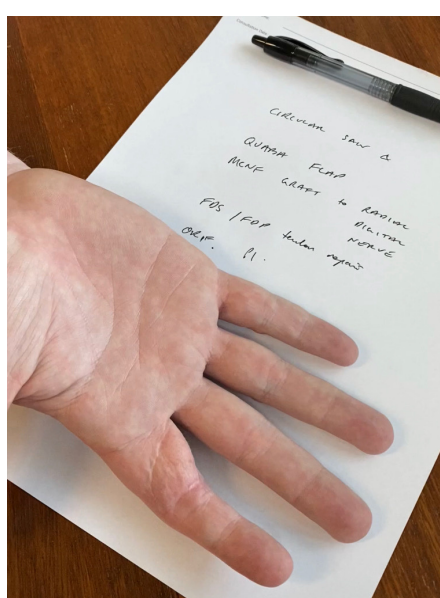 CIRCULAR SAW Δ
QUABA FLAP
MCNF GRAFT to RADIAL
DIGITAL
NERVE
FDS / FDP tendon repair
ORIF. P1.